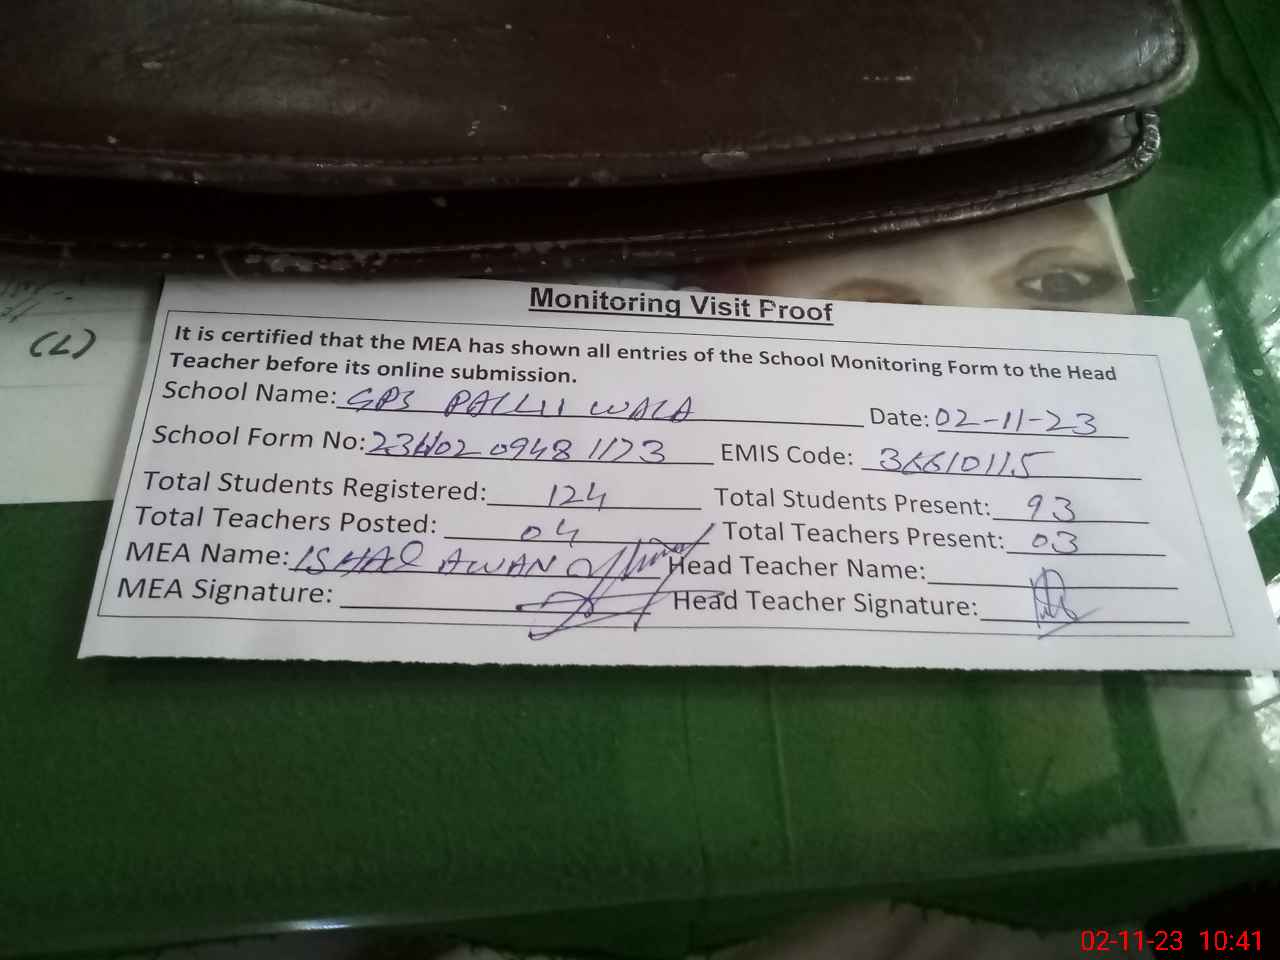 (L)
Monitoring Visit Proof
It is certified that the MEA has shown all entries of the School Monitoring Form to the Head
Teacher before its online submission.
School Name: GPS PALLI WALA Date: 02-11-23
School Form No: 23H02 0948 1123 EMIS Code: 36610115
Total Students Registered: 124 Total Students Present: 93
Total Teachers Posted: 04 Total Teachers Present: 03
MEA Name: ISHAQ AWAN Head Teacher Name:
MEA Signature: Head Teacher Signature:
02-11-23 10:41